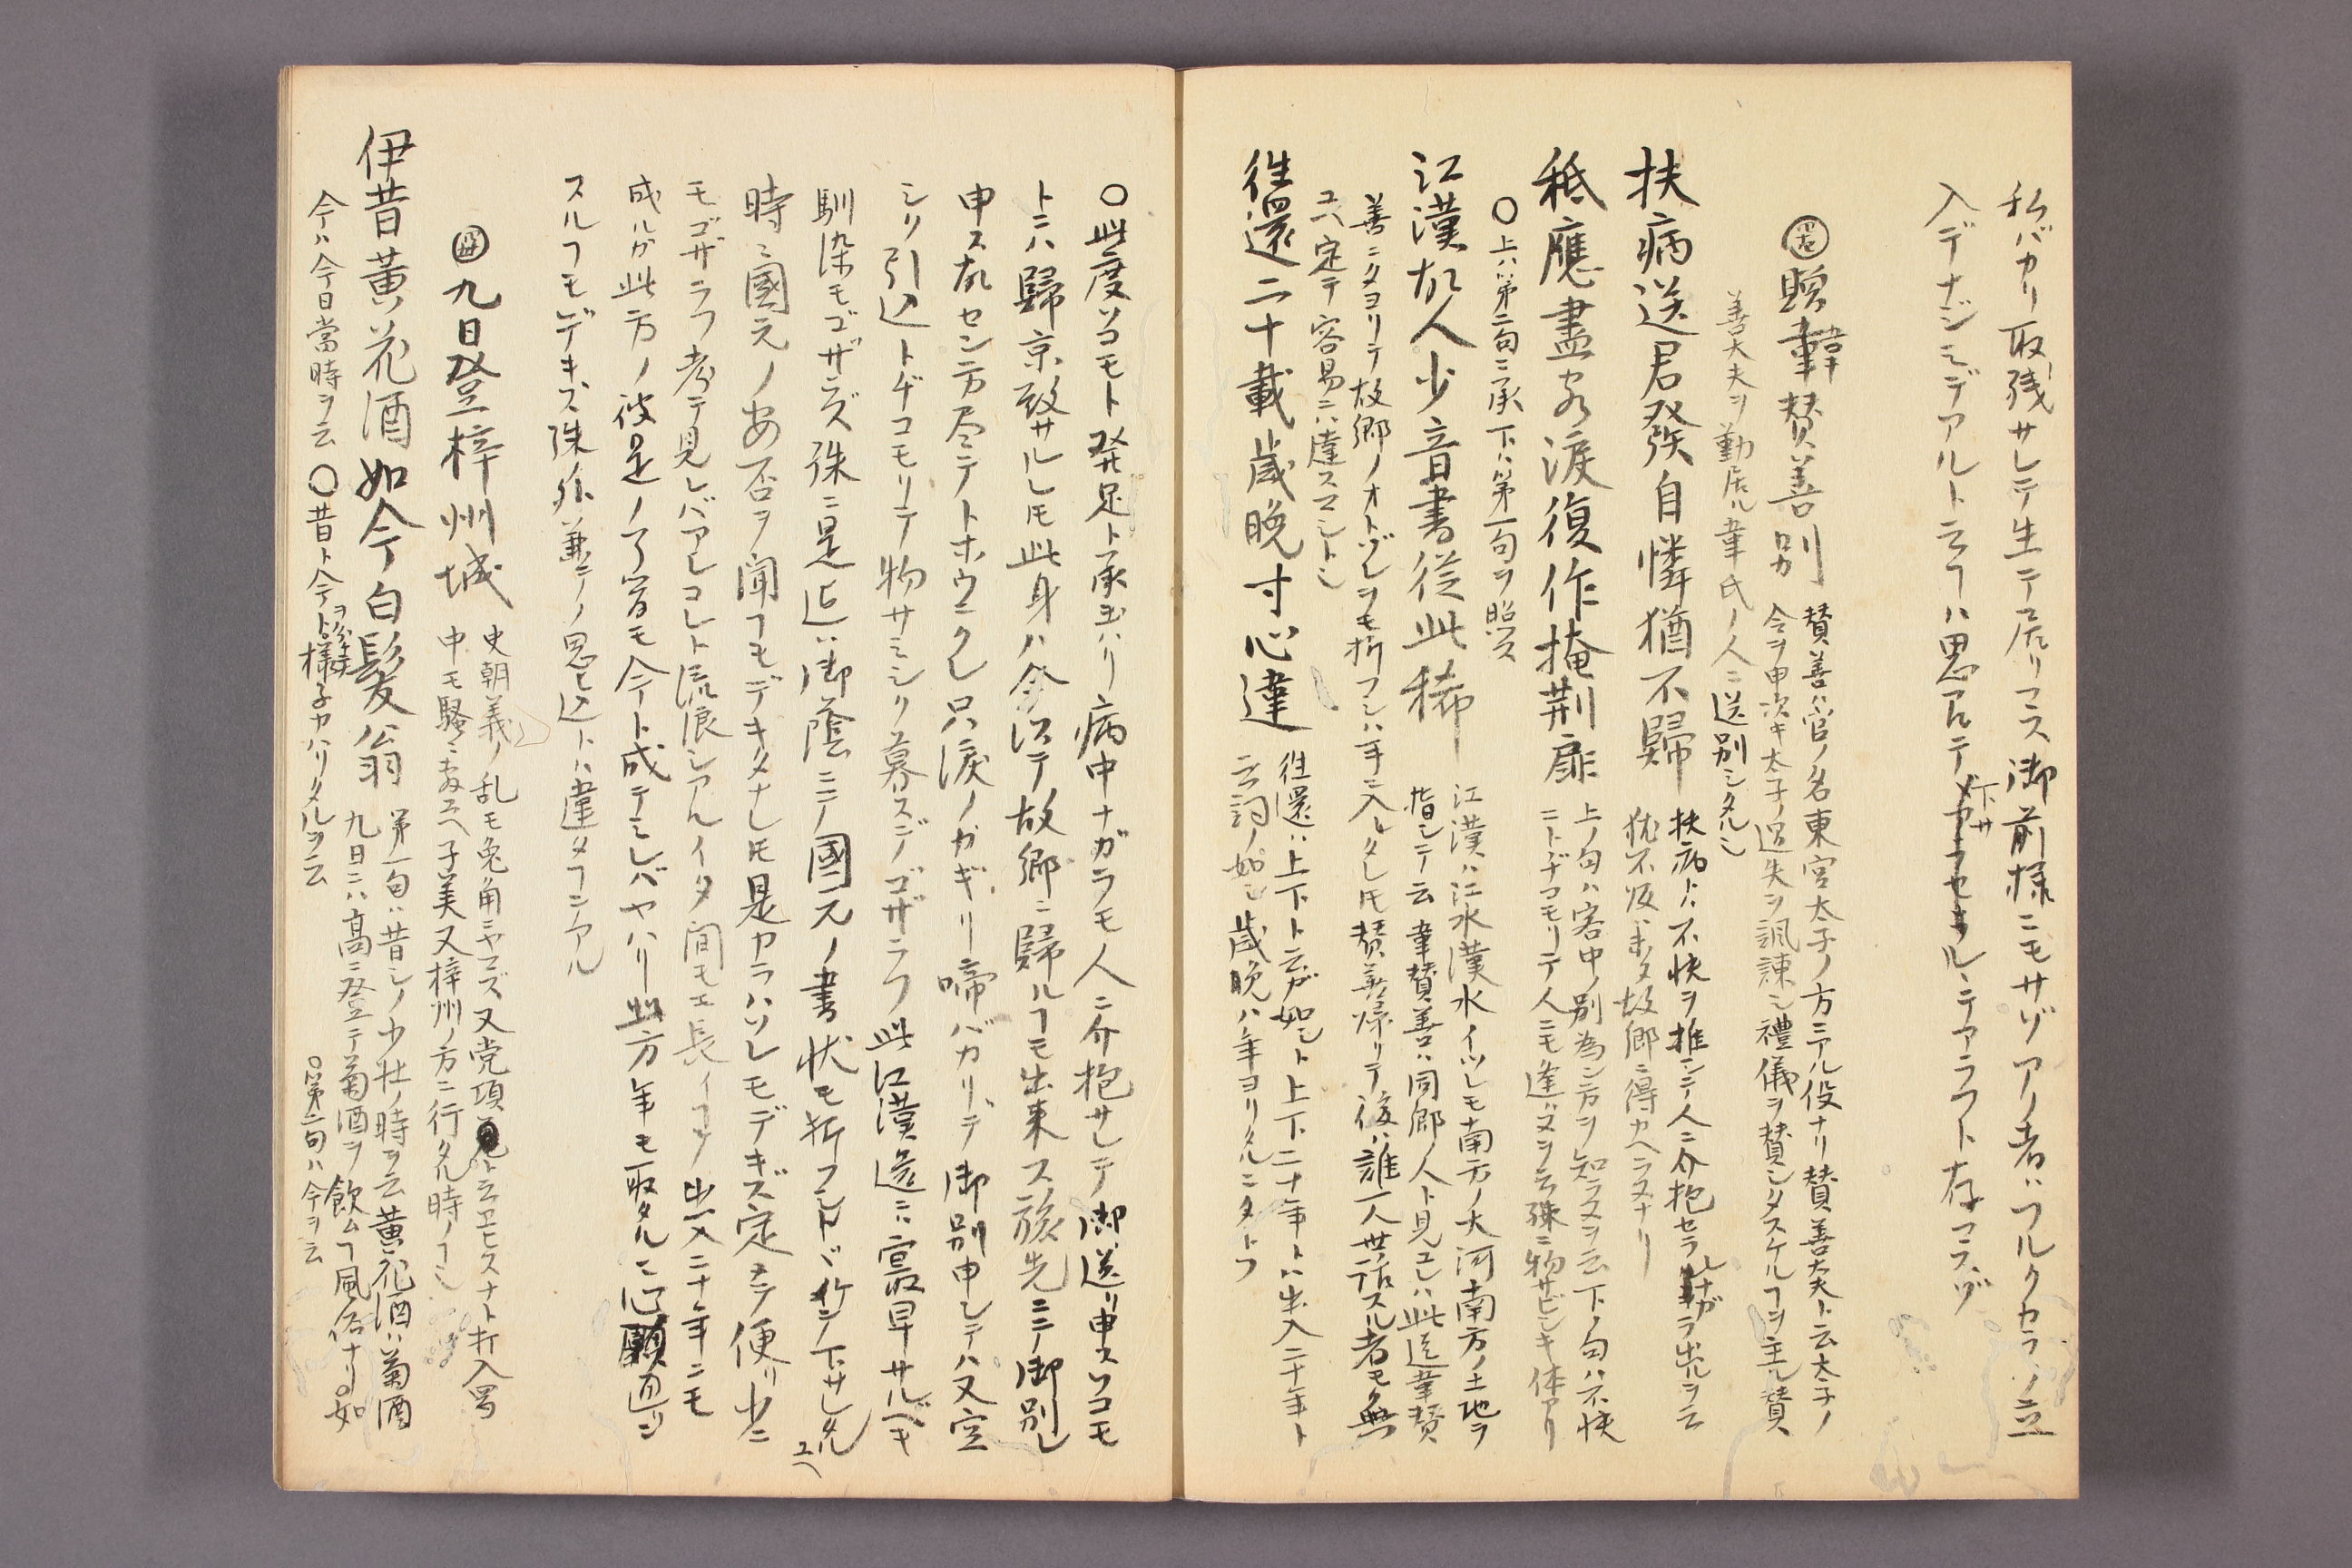 私バカリ取残サレテ生テ居リマス御前様ニモサゾアノ者ハフルクカラノ立
入デナジミデアルト云フヿハ思アルテ下サルニテアラフト存マスゾ
贈韋賛善別
賛善ハ官ノ名東宮太子ノ方ニアル役ナリ賛善大夫ト云太子ノ
令ヲ申次キ太子ノ過失ヲ諷諫シ禮儀ヲ賛シタスケルヿヲ主ル賛
善大夫ヲ勤居ル韋氏ノ人ニ送別シタル也
扶病送君發自憐猶不歸
扶病トハ不快ヲ推シテ人ニ介抱セラレナガラ出ルヲ云
猶不歸ハ未タ故郷ニ得カヘラヌナリ
秪應盡客淚復作掩荆扉
上ノ句ハ客中ノ別為ン方ヲ知ラヌヲ云下ノ句ハ不快
ニトヂコモリテ人ニモ逢ハヌヲ云殊ニ物サビシキ体アリ
〇上ハ第二句ニ承下ハ第一句ヲ照ス
江漢故人少音書從此稀
江漢ハ江水漢水イツレモ南方ノ大河南方ノ土地ヲ
指シテ云韋賛善ハ同郷人ト見エシハ此迄韋賛
善ニタヨリテ故郷ノオトヅレヲモ折フシハ手ニ入レタレ𪜈賛善帰リテ後ハ誰一人世話スル者モ無
ユヘ定テ容易ニハ達スマシトシ
往還二十載歲晩寸心違
往還ハ上下ト云ガ如シト上下二十年トハ出入二十年ト
云詞ノ如シ歲晩ハ年ヨリタルニタトフ
〇此度ソコモト発足ト承ハリ病中ナガラモ人ニ介抱サレテ御送リ申スソコモ
トニハ歸京致サルレ𪜈此身ハ今以テ故郷ニ歸ルヿモ出来ス旅先ニテノ御別レ
申ス故センカ尽テトホウニクレ只淚ノカギリ啼バカリデ御別申シテハ又空
シク引込トヂコモリテ物サミシク暮スジノゴザラフ此江漢邊ニハ最早サルベキ
馴染モゴザラズ殊ニ是迄ハ御蔭ニテノ國元ノ書状モ折フシトドキ下サレタルユヘ
時ニ國元ノ安否ヲ聞ヿモデキタナレ𪜈是カラハソレモデキズ定テ便リ少ニ
モゴザラフ考テ見レバアレコレト流浪シアルイタ間モエ長イヿデ出入二十年ニモ
成ルガ此方ノ彼是ノ了簡モ今ト成テミレバヤハリ此方年モ取タルニ心願通ジ
スルヿモデキズ殊外兼テノ思ヒ込トハ違タヿシアル
九日登梓州城
史朝義ノ乱モ兔角ニヤマズ又党項ト云ヱビスナト打入畧
中モ騒々敷ユヘ子美又梓州ノ方ニ行タル時ノヿシ
伊昔黃花酒如今白髮翁
第一句ハ昔シノ少壮ノ時ヲ云黄花酒ハ菊酒
九日ニハ高ニ登テ菊酒ヲ飲ムヿ風俗ナリ如
今ハ今日當時ヲ云〇昔ト今ト様子カハリタルヲ云
〇第二句ハ今ヲ云